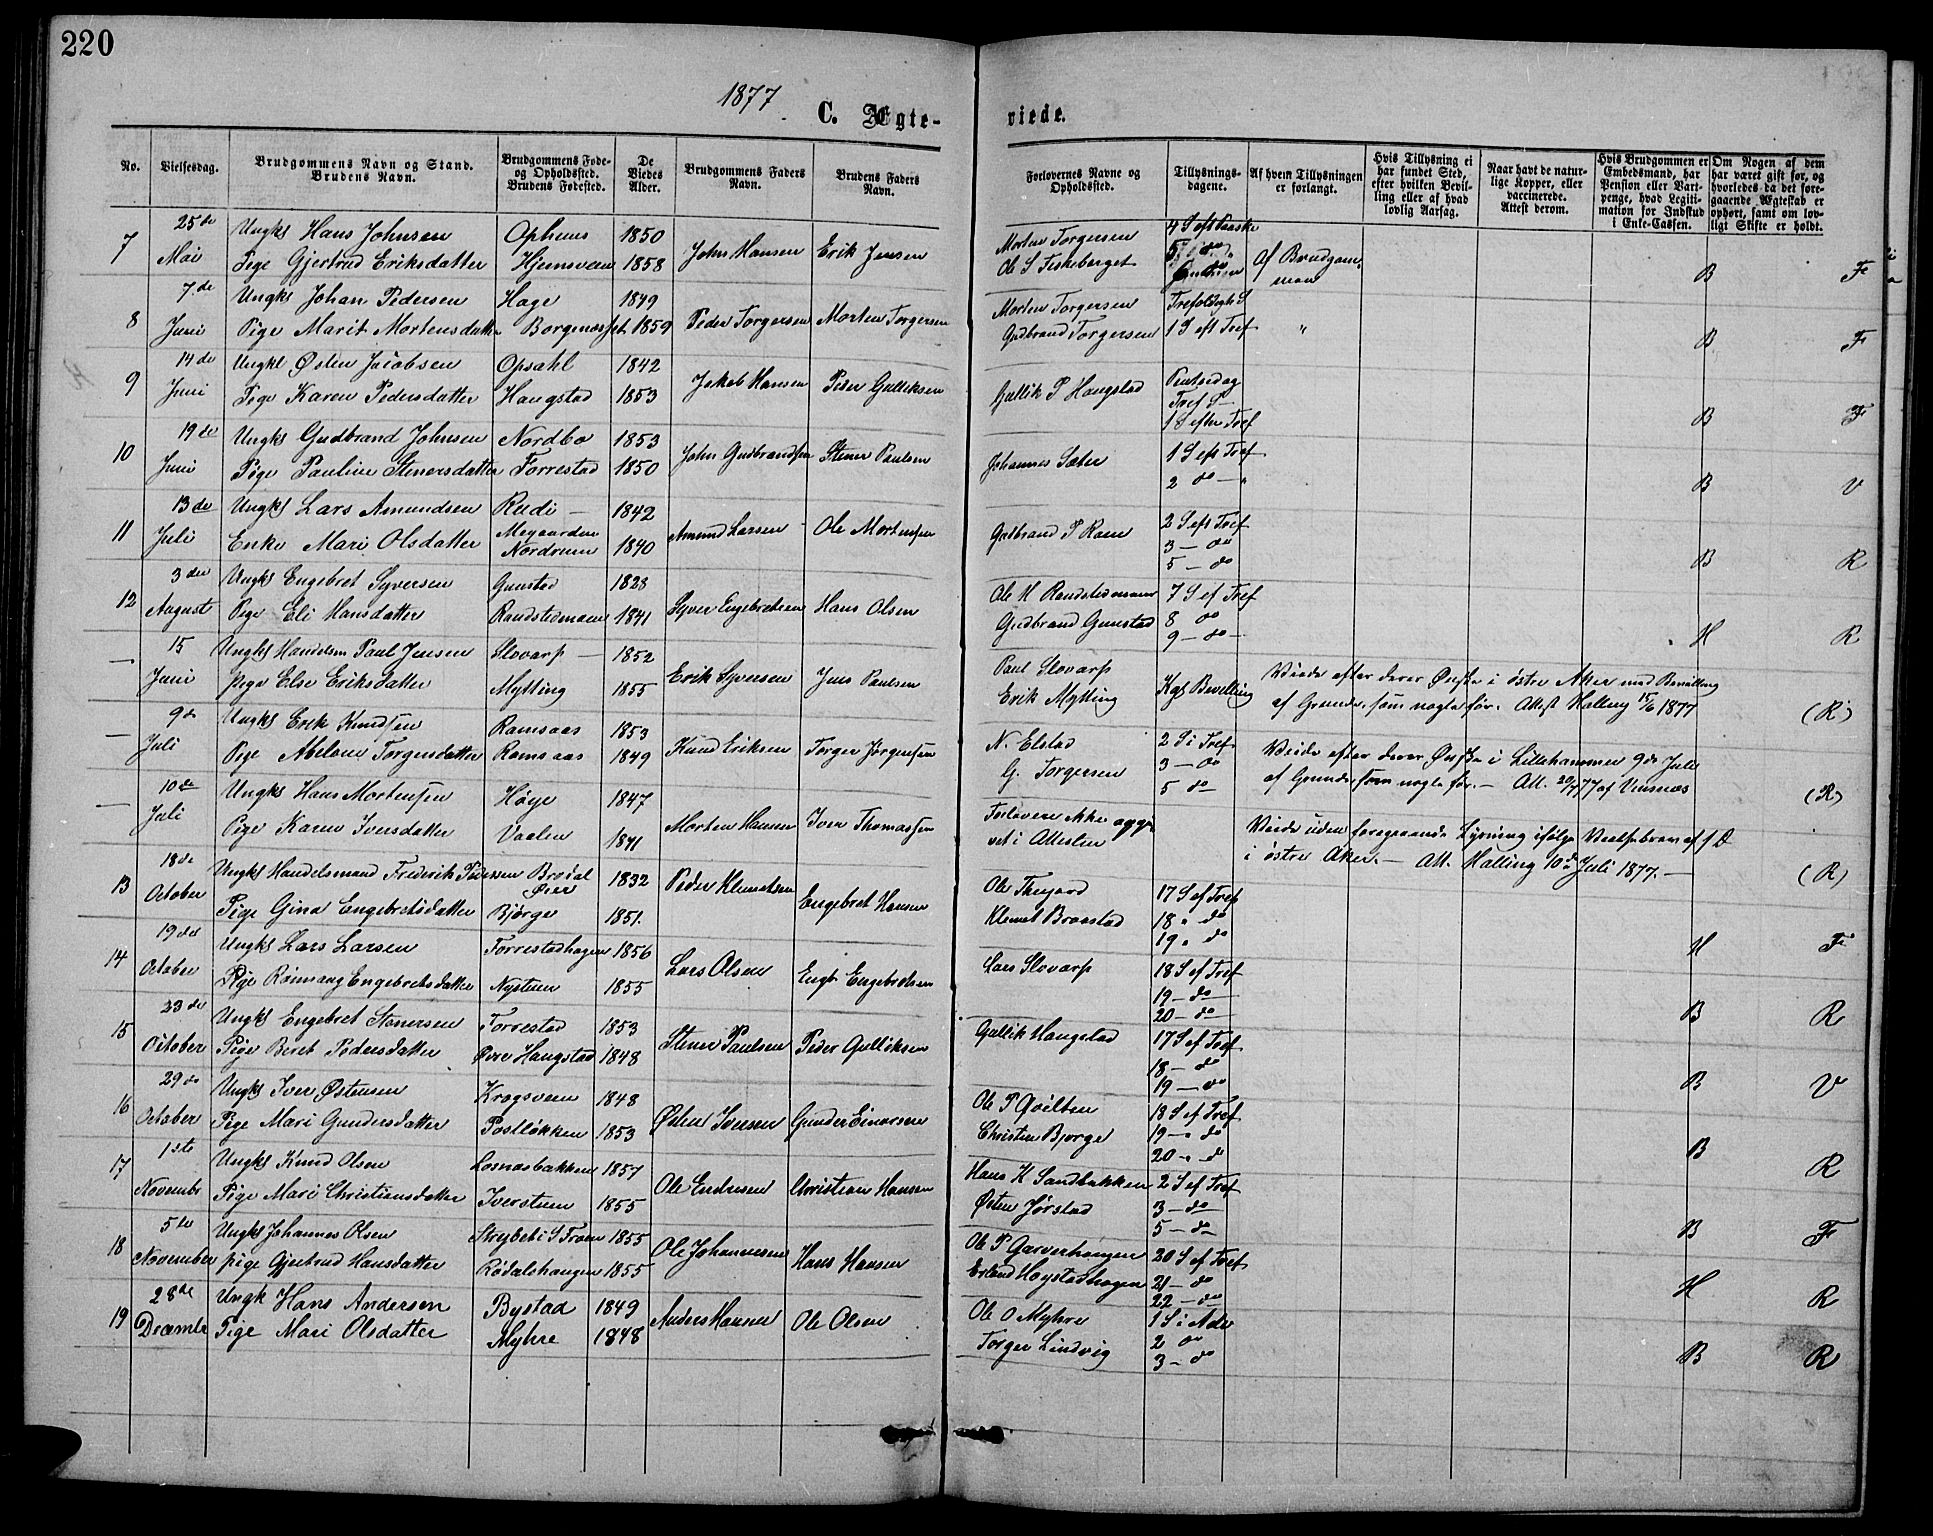 220
1877
C. Ægte-
viede.
No.
Vielsesdag.
Brudgommens Navn og Stand.
Brudens Navn.
Brudgommens Føde-
og Opholdssted.
Brudens Fødested.
De
Viedes
Alder.
Brudgommens Faders
Navn.
Brudens Faders
Navn.
Forlovernes Navne og
Opholdssted.
Tillysnings-
dagene.
Af hvem Tillysningen
er forlangt.
Hvis Tillysning ei
har fundet Sted,
efter hvilken Bevil-
ling eller af hvad
lovlig Aarsag.
Naar havt de natur-
lige Kopper, eller
vaccinerede.
Attest derom.
Hvis Brudgommen er
Embedsmand, har
Pension eller Vart-
penge, hvad Legiti-
mation for Indskud
i Enke-Cassen.
Om Nogen af dem
har været gift før, og
hvorledes da det fore-
gaaende Ægteskab er
ophørt, samt om lov-
ligt Skifte er holdt.
7 25de Mai
Ungkl Hans Johnsen Ophuus 1850
Pige Gjertrud Eriksdatter Hjemsveen 1858
John Hansen Erik Jensen
Morten Torgersen 4 S eft Paaske
Ole S Fiskeberget 5 do
Af Brudgom-
men
B F
8 7de Juni
Ungkl Johan Pedersen Hage 1849
Pige Marit Mortensdatter 1859
Peder Torgersen Morten Torgersen
Morten Torgersen
Gudbrand Torgersen 1 S eft Tref "
B F
9 14de Juni
Ungkl Østen Jacobsen Opsahl 1842
Pige Karen Pedersdatter Haugstad 1853
Jakob Hansen Peder Gulliksen
Gullik P Haugstad Pintsedag
Tref S
1 S efter Tref
B F
10 19de Juni
Ungkl Gudbrand Johnsen Nordbo 1853
Pige Pauline Stenersdatter Forrestad 1850
John Gudbrandsen Stener Paulsen
Johannes Sæter 1 S eft Tref
2 do "
B V
11 13de Juli
Ungkl Lars Amundsen Rudi 1842
Enke Mari Olsdatter Megaarden
Nordrum 1840
Amund Larsen Ole Mortensen
Gudbrand P Raen 2 S eft Tref
3 — do
5 — do
B R
12 3die August
Ungkl Engebret Syversen Gunstad 1828
Pige Eli Hansdatter Randstedmoen 1841
Syver Engebretsen Hans Olsen
Ole H Randstedmoen 7 S ef Tref
Gudbrand Gunstad 8 do
9 — do
H R
— 15 Juni
Ungkl Handelsm Paul Jensen Slovarp 1852
Pige Else Eriksdatter Mytting 1855
Erik Syversen Jens Paulsen
Paul Slovarp
Erik Mytting Kgl Bevilling
Viede efter deres Ønske i østre Aker med Bevilling
af Grunde, som nogle før. Attest Halling 15/6 1877
(R)
— 9de Juli
Ungkl Erik Knudsen Ramsaas 1853
Pige Abelone Torgersdatter Ramsaas 1849
Knud Eriksen Torger Jørgensen
N. Elstad 2 S i Tref
G. Torgersen 3 — do
5 do
Viede efter deres Ønske i Lillehammer 9de Juli
af Grunde, som nogle før. — Att. 20/7 77 af Vinsnes
(R)
— 10de Juli
Ungkl Hans Mortensen Høye 1847
Pige Karen Iversdatter Vaalen 1841
Morten Hansen Iver Thomassen
Forlovere ikke opgi-
vet i Attesten
Viede uden foregaaende Lysning ifølge Vielsesbrev af s. D
i østre Aker. — Att. Halling 10de Juli 1877. —
(R)
13 18de October
Ungkl Handelsmand Frederik Pedersen Brodal
Øier 1832
Pige Gina Engebretsdatter Bjørge 1851.
Peder Klemetsen Engebret Hansen
Ole Thujord 17 S ef Tref
Klemet Braastad 18 " do
19 " do
H F
14 19de October
Ungkl Lars Larsen Forrestadhagen 1856
Pige Rønnaug Engebretsdatter Nystuen 1855
Lars Olsen Engb. Engebretsen
Lars Slovarp 18 S ef Tref
19 — do
20 — do
B R
15 23de October
Ungkl Engebret Stenersen Forrestad 1853
Pige Beret Pedersdatter Øvre Haugstad 1848
Stener Paulsen Peder Gulliksen
Gullik Haugstad 17 S ef Tref
18 — do
19 — do
B V
16 29de October
Ungkl Iver Østensen Krogsveen 1848
Pige Mari Gundersdatter Postløkken 1853
Østen Iversen Gunder Einarsen
Ole P Qvilten 18 S ef Tref
Christen Bjørge 19 — do
20 " do
B R
17 1ste Novembr
Ungkl Knud Olsen Losnabakken 1857
Pige Mari Christiansdatter Iverstuen 1855
Ole Endresen Christian Hansen
Hans K Sandbakken 2 S ef Tref
Østen Jørstad 3 — do
5 — do
B F
18 5te November
Ungkl Johannes Olsen Strybeti S Froen 1855
pige Gjertrud Hansdatter Rødalshaugen 1855
Ole Johannesen Hans Hansen
Ole P Garverhaugen 20 S ef Tref
Erland Høystadhagen 21 — do
22 — do
H R
19 28de Decembr
Ungk Hans Andersen Bystad 1849
Pige Mari Olsdatter Myhre 1848
Anders Hansen Ole Olsen
Ole O Myhre 1 S i Adv
Torger Lindvig 2 do
3 — do
B R